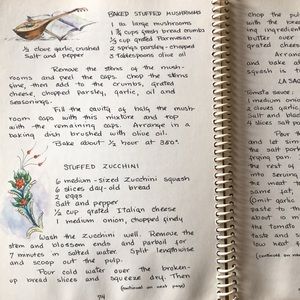 BAKED STUFFED MUSHROOMS
1 lb. large mushrooms
1 3/4 cups fresh bread crumbs
1/2 cup grated Parmesan
1/2 clove garlic, crushed
2 sprigs parsley-chopped
Salt and pepper
3 tablespoons olive oil
Remove the stems of the mush-
rooms and peel the caps. Chop the stems
fine, then add to the crumbs, grated
cheese, chopped parsley, garlic, oil and
seasonings.
Fill the cavity of half the mush-
room caps with this mixture and top
with the remaining caps. Arrange in a
baking dish brushed with olive oil.
Bake about 1/2 hour at 350°.
STUFFED ZUCCHINI
6 medium-sized Zucchini squash
6 slices day-old bread
2 eggs
Salt and pepper
1/2 cup grated Italian cheese
1 medium onion, chopped finely
Wash the zucchini well. Remove the
stem and blossom ends and parboil for
7 minutes in salted water. Split lengthwise
and scoop out the pulp.
Pour cold water over the broken-
up bread slices and squeeze dry. Then
(continued on next page)
94
chop the pul
with the brea
ing ingredient
butter
grated chees
Arran
and bake a
squash is t
LA SAG
Tomato sauce:
1 medium oni
2 cloves garlic
Salt and
4 slices salt po
Cut
and let sim
the salt pork
frying pan.
the rest of
into serving
the meat t
same fat,
(Omit garlic
paste to th
about 10 m
the tomato
taste and s
low heat f
(continued on ne